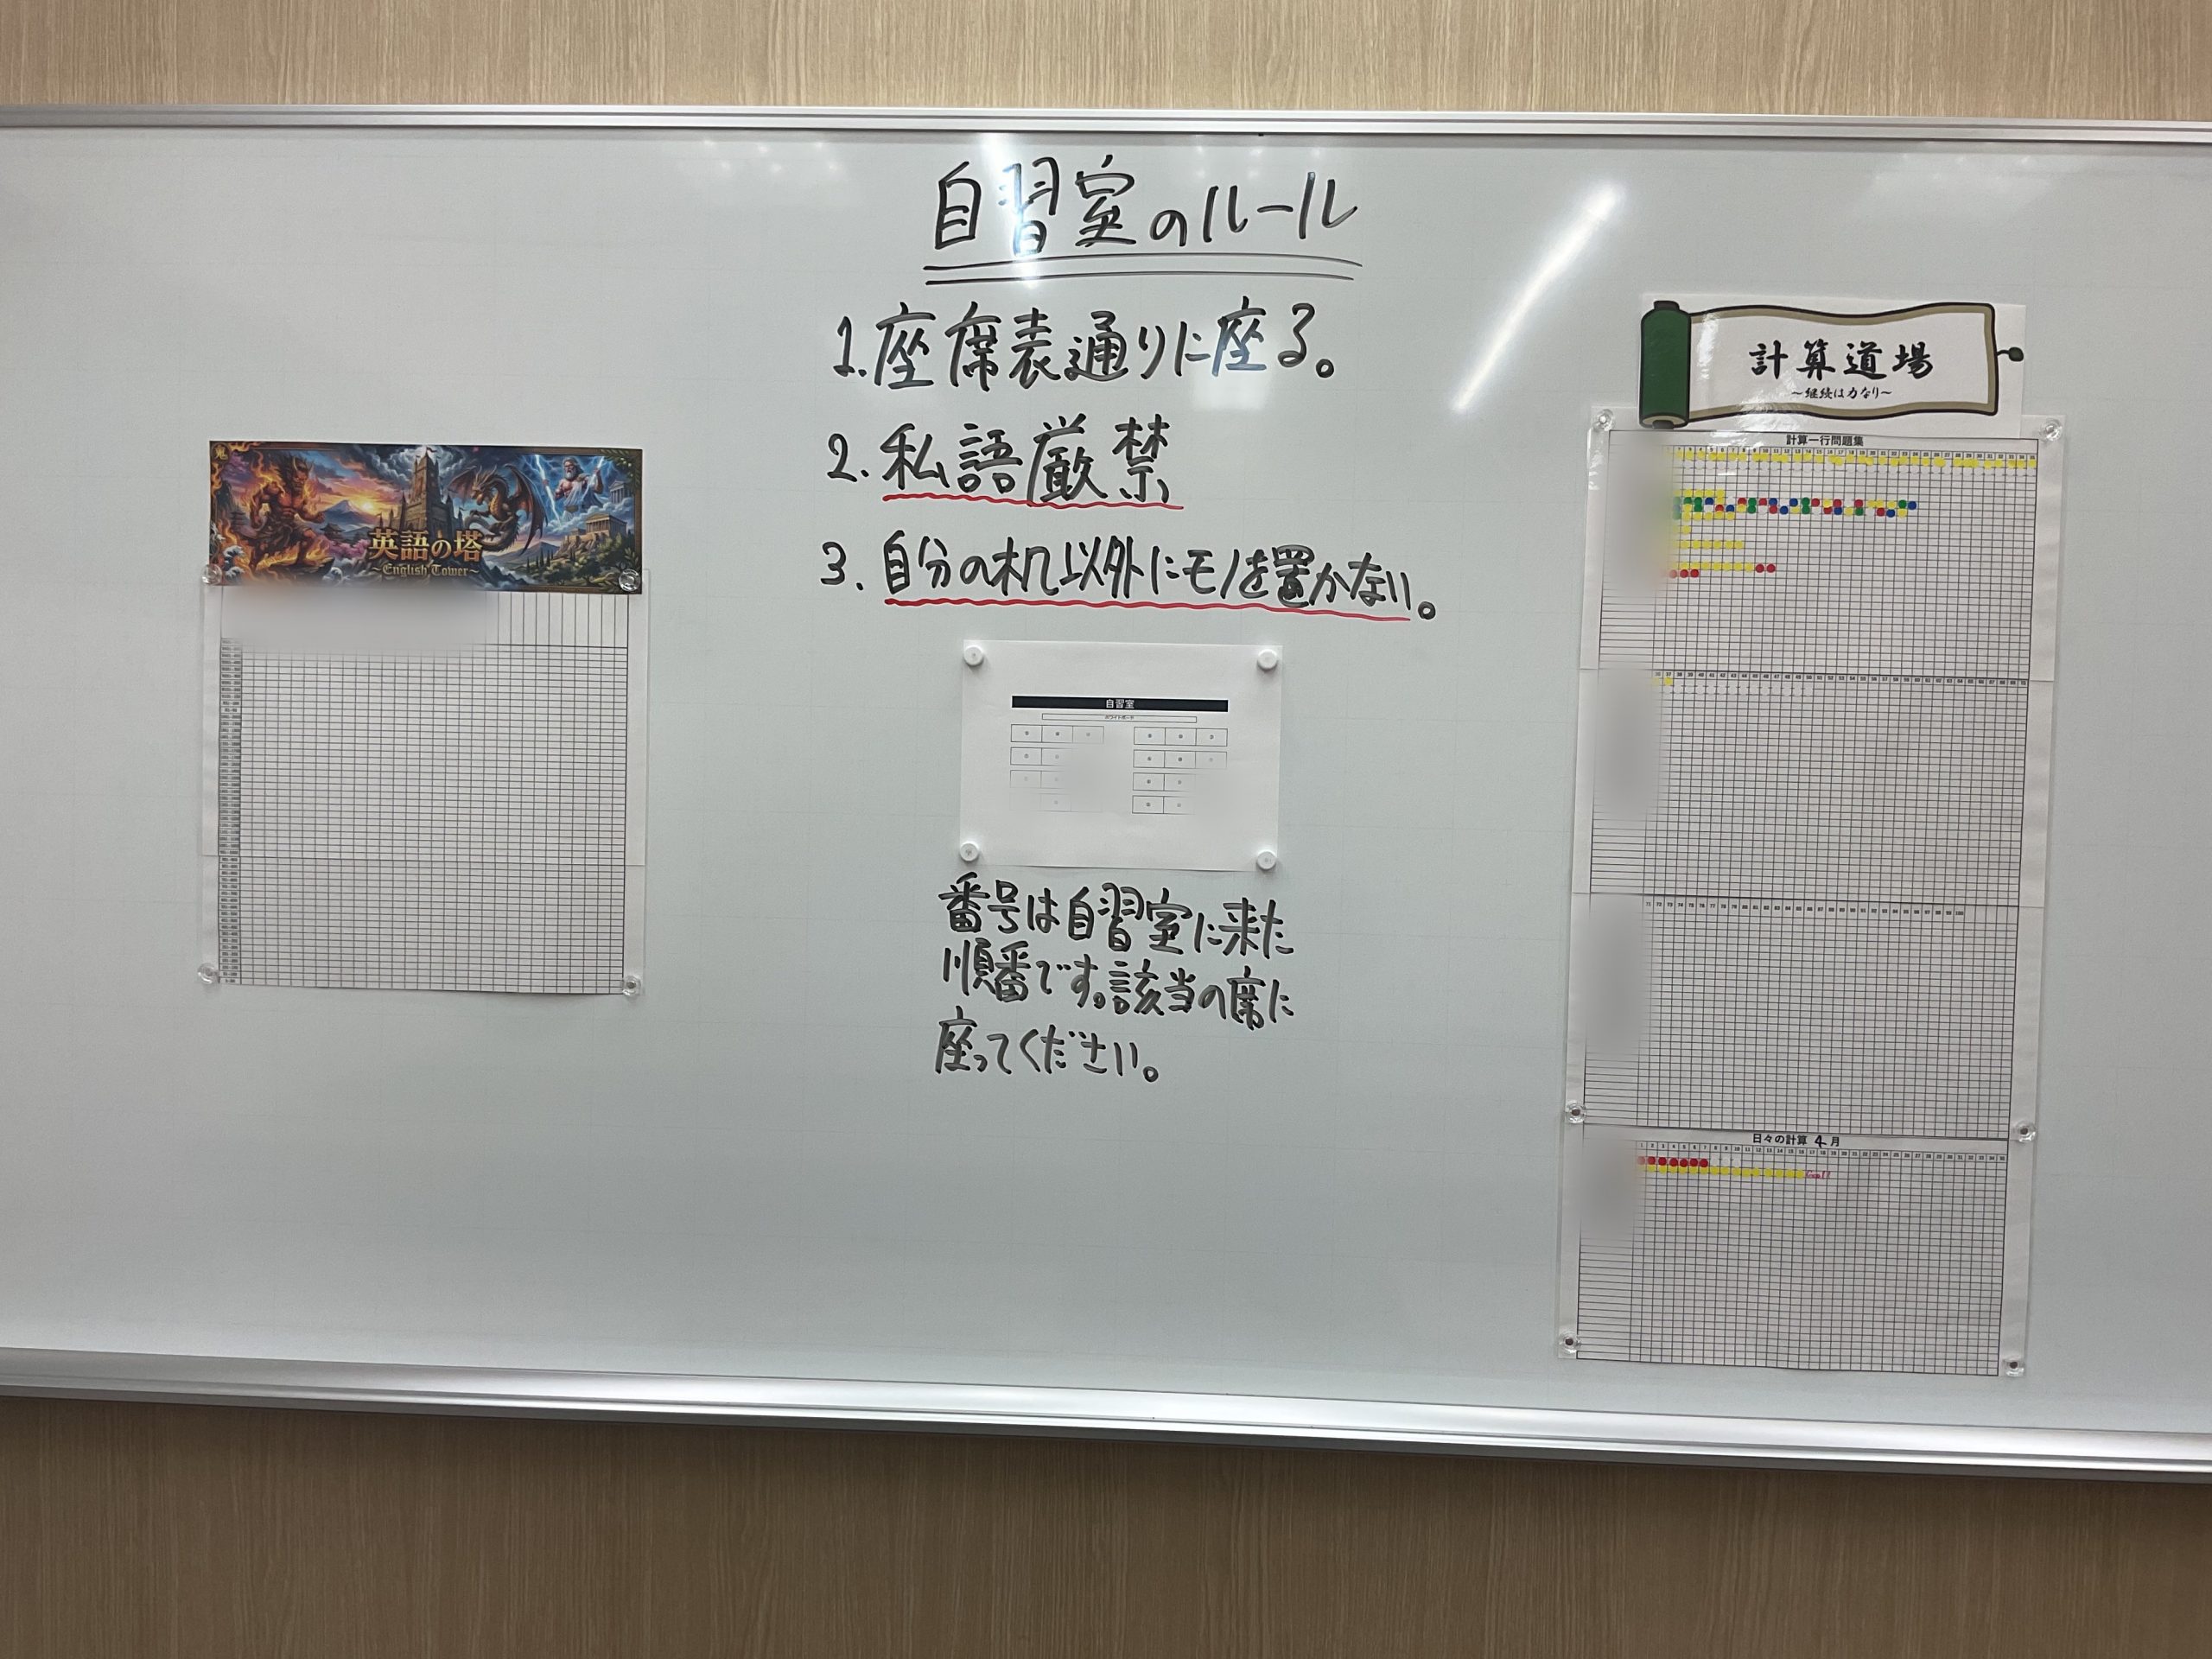 自習室のルール
1.座席表通りに座る。
2.私語厳禁
3.自分の机以外にモノを置かない。
自習室
ホワイトボード
番号は自習室に来た
順番です。該当の席に
座ってください。
英語の塔
~English Tower~
計算道場
~継続は力なり~
計算一行問題集
日々の計算 4月